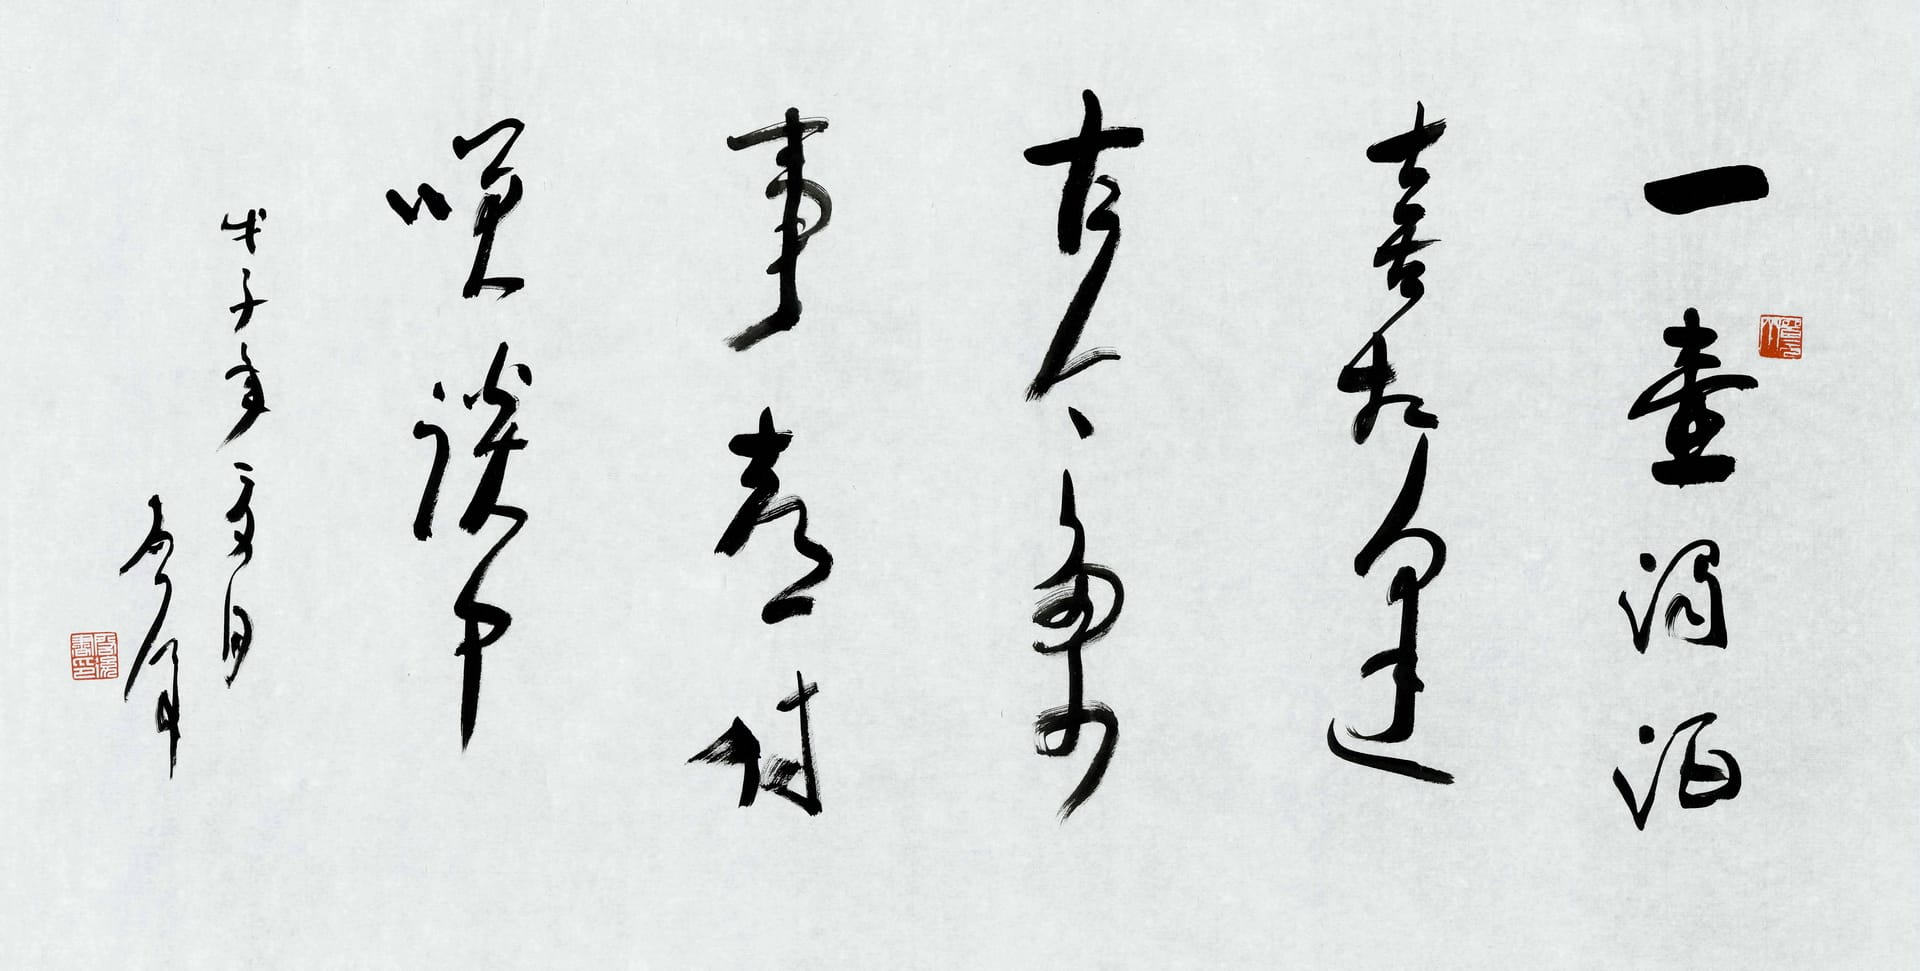 一壺濁酒
喜相逢
古今多少
事都付
咲談中
戊子年夏月